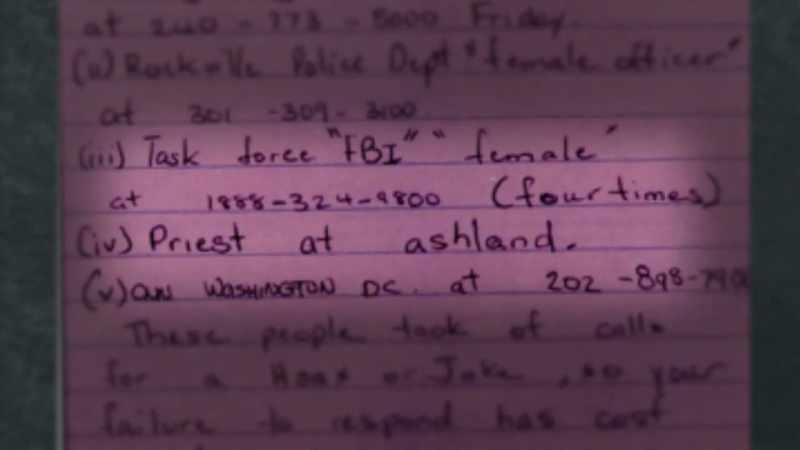 at 240 - 773 - 5000 Friday.
(ii) Rockville Police Dept "female officer"
at 301 -309- 3100
(iii) Task force "FBI" "female"
at 1888-324-9800 (four times)
(iv) Priest at ashland.
(v) CNN WASHINGTON DC. at 202 -898-7900
These people took of calls
for a Hoax or Joke, so your
failure to respond has cost